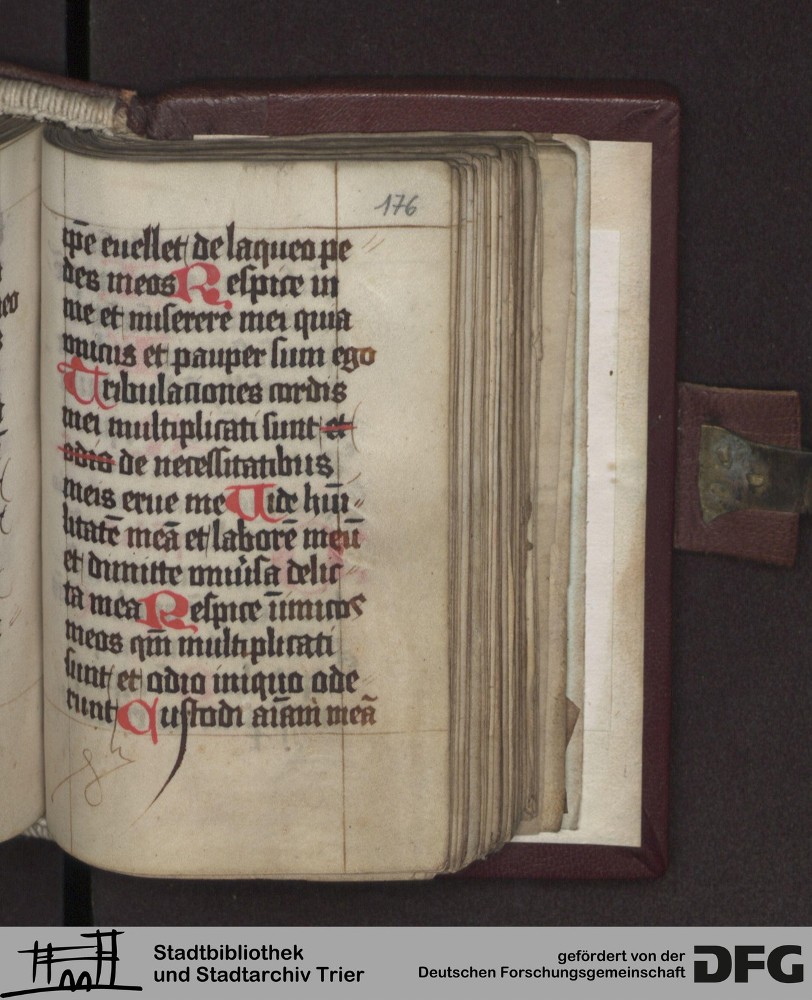 176
ip̄e euellet de laqueo pe
des meos Respice in
me et miserere mei quia
vnicus et pauper sum ego
Tribulationes cordis
mei multiplicati sunt et
odio de necessitatibus
meis erue me Vide hūi
litatē meā et laborē meū
et dimitte vniūsa delic
ta mea Respice inimicos
meos qm̄ multiplicati
sunt et odio iniquo ode
runt Custodi aīam meā
Stadtbibliothek
und Stadtarchiv Trier
gefördert von der
Deutschen Forschungsgemeinschaft
DFG